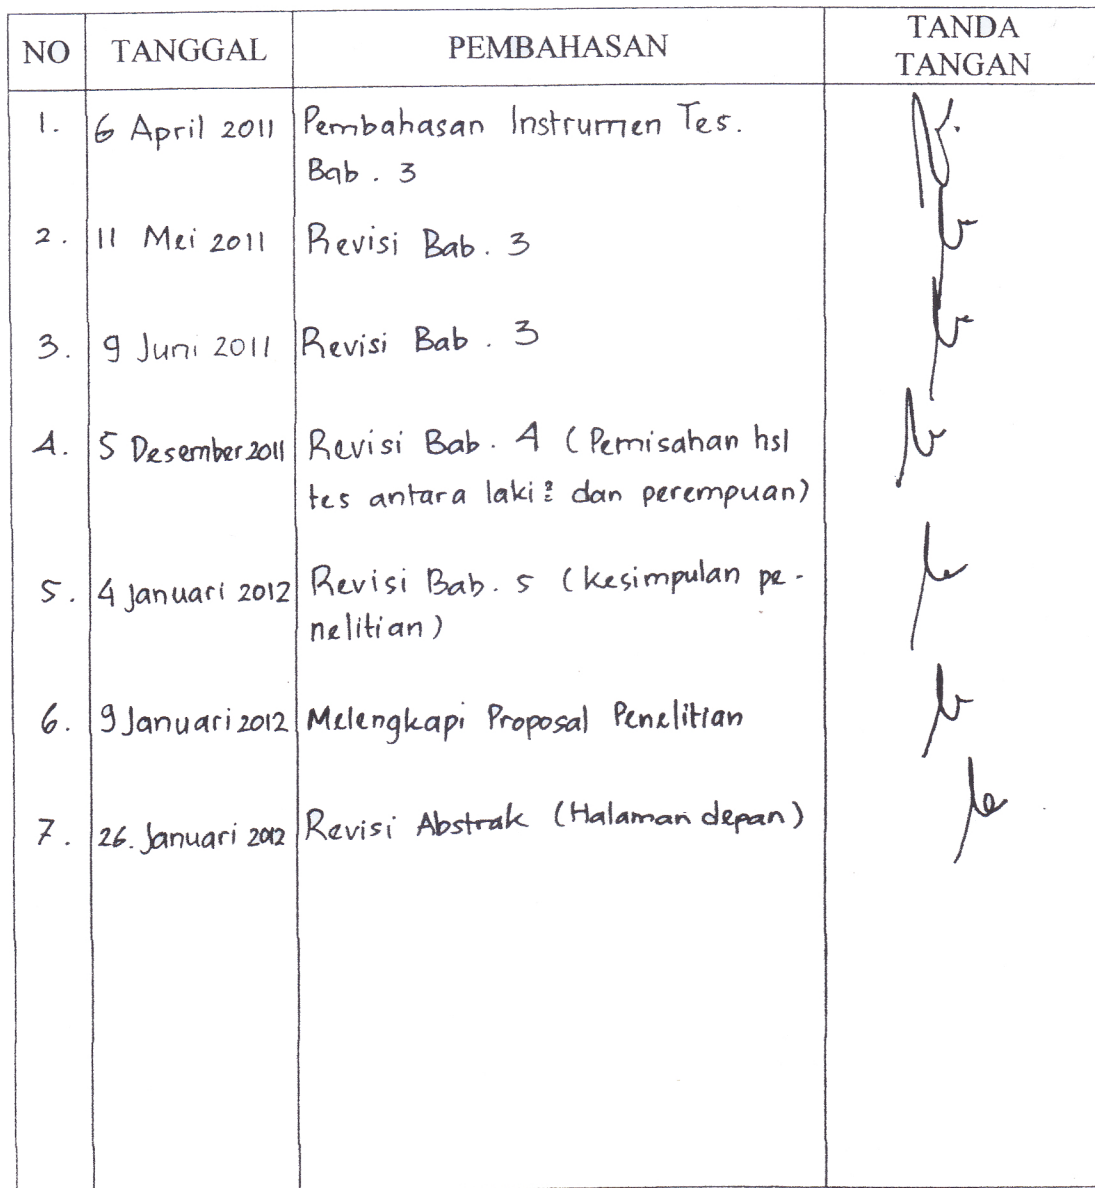 NO TANGGAL PEMBAHASAN TANDA
TANGAN
1. 6 April 2011 Pembahasan Instrumen Tes.
Bab. 3
2. 11 Mei 2011 Revisi Bab. 3
3. 9 Juni 2011 Revisi Bab. 3
4. 5 Desember 2011 Revisi Bab. 4 (Pemisahan hsl
tes antara laki² dan perempuan)
5. 4 Januari 2012 Revisi Bab. 5 (kesimpulan pe-
nelitian)
6. 9 Januari 2012 Melengkapi Proposal Penelitian
7. 26. Januari 2012 Revisi Abstrak (Halaman depan)